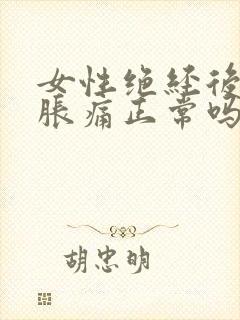 女性绝经後
胀痛正常吗
胡忠明